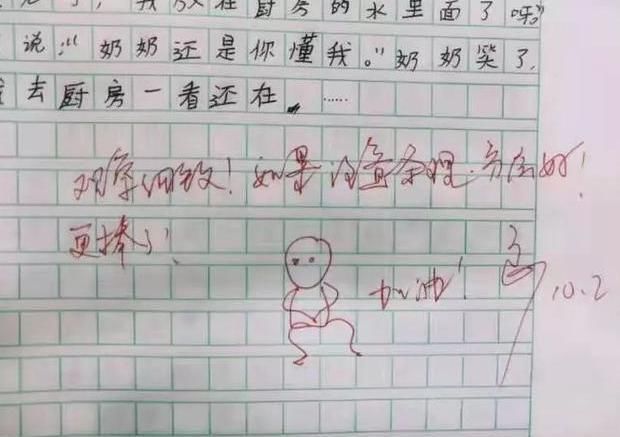 我放在厨房的水里面了呀。"
说:"奶奶还是你懂我。"奶奶笑了,
去厨房一看还在,……
观察细致!如果注意条理,书写好!
更棒了!
加油!
10.2